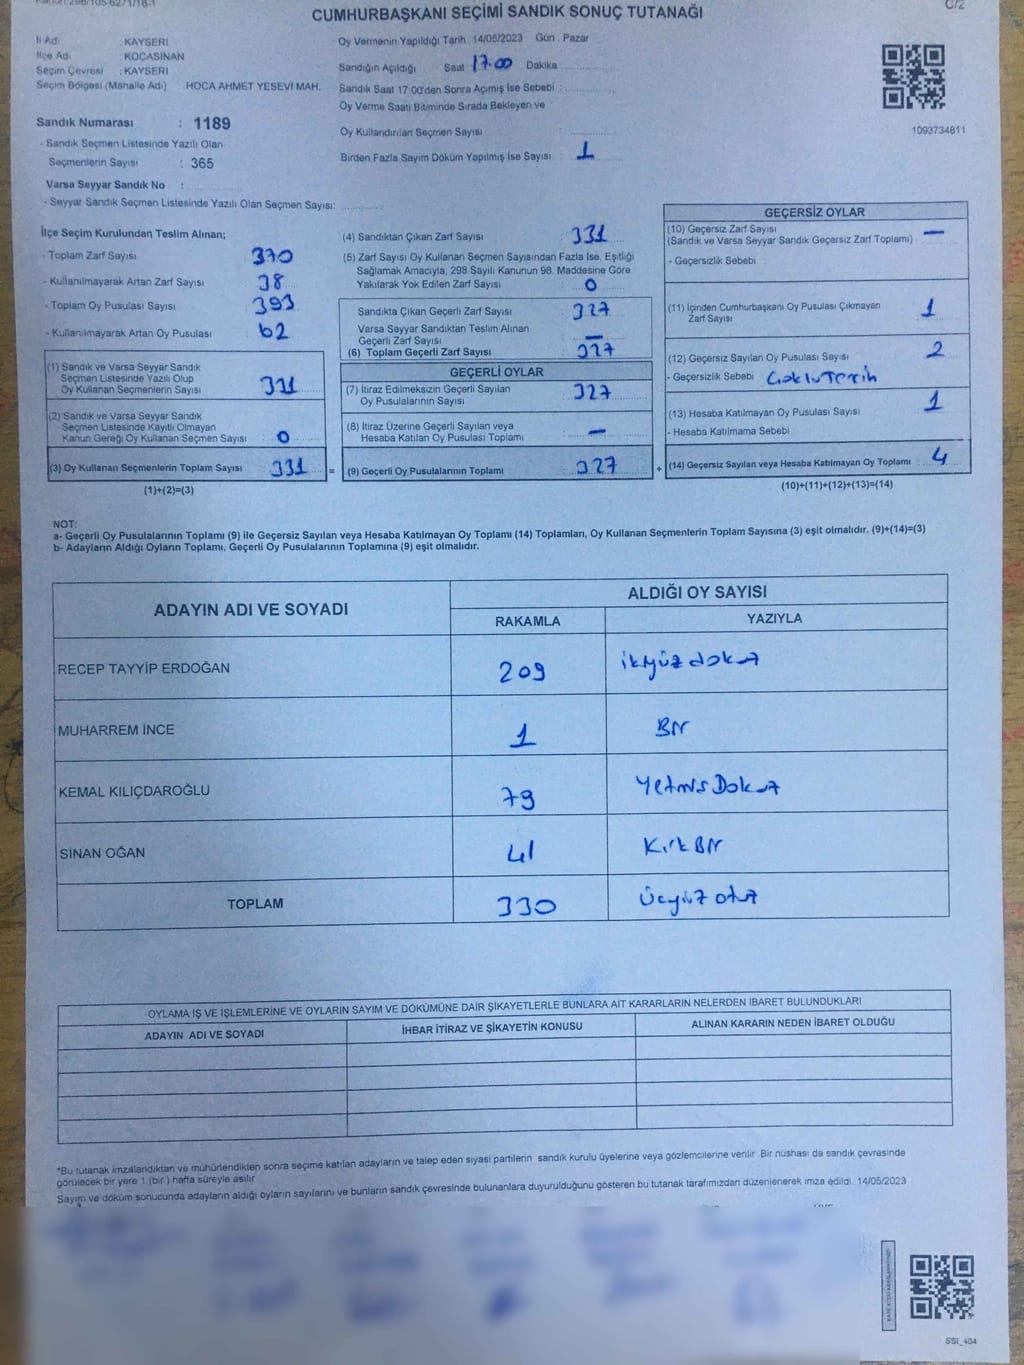 C/2
CUMHURBAŞKANI SEÇİMİ SANDIK SONUÇ TUTANAĞI
İl Adı : KAYSERİ
İlçe Adı : KOCASİNAN
Seçim Çevresi : KAYSERİ
Seçim Bölgesi (Mahalle Adı) : HOCA AHMET YESEVİ MAH.
Sandık Numarası : 1189
- Sandık Seçmen Listesinde Yazılı Olan
Seçmenlerin Sayısı : 365
Varsa Seyyar Sandık No :
- Seyyar Sandık Seçmen Listesinde Yazılı Olan Seçmen Sayısı:
Oy Vermenin Yapıldığı Tarih : 14/05/2023 Gün : Pazar
Sandığın Açıldığı Saat 17.00 Dakika
Sandık Saat 17:00'den Sonra Açımış İse Sebebi :
Oy Verme Saati Bitiminde Sırada Bekleyen ve
Oy Kullandırılan Seçmen Sayısı :
Birden Fazla Sayım Döküm Yapılmış İse Sayısı : 1
1093734811
İlçe Seçim Kurulundan Teslim Alınan;
- Toplam Zarf Sayısı : 370
- Kullanılmayarak Artan Zarf Sayısı : 38
- Toplam Oy Pusulası Sayısı : 393
- Kullanılmayarak Artan Oy Pusulası : 62
(1) Sandık ve Varsa Seyyar Sandık
Seçmen Listesinde Yazılı Olup
Oy Kullanan Seçmenlerin Sayısı : 331
(2) Sandık ve Varsa Seyyar Sandık
Seçmen Listesinde Kayıtlı Olmayan
Kanun Gereği Oy Kullanan Seçmen Sayısı : 0
(3) Oy Kullanan Seçmenlerin Toplam Sayısı : 331
(1)+(2)=(3)
(4) Sandıktan Çıkan Zarf Sayısı : 331
(5) Zarf Sayısı Oy Kullanan Seçmen Sayısından Fazla İse, Eşitliği
Sağlamak Amacıyla, 298 Sayılı Kanunun 98. Maddesine Göre
Yakılarak Yok Edilen Zarf Sayısı : 0
Sandıkta Çıkan Geçerli Zarf Sayısı : 327
Varsa Seyyar Sandıktan Teslim Alınan
Geçerli Zarf Sayısı : —
(6) Toplam Geçerli Zarf Sayısı : 327
GEÇERLİ OYLAR
(7) İtiraz Edilmeksizin Geçerli Sayılan
Oy Pusulalarının Sayısı : 327
(8) İtiraz Üzerine Geçerli Sayılan veya
Hesaba Katılan Oy Pusulası Toplamı : —
= (9) Geçerli Oy Pusulalarının Toplamı : 327 +
GEÇERSİZ OYLAR
(10) Geçersiz Zarf Sayısı
(Sandık ve Varsa Seyyar Sandık Geçersiz Zarf Toplamı) : —
- Geçersizlik Sebebi :
(11) İçinden Cumhurbaşkanı Oy Pusulası Çıkmayan
Zarf Sayısı : 1
(12) Geçersiz Sayılan Oy Pusulası Sayısı : 2
- Geçersizlik Sebebi : Çoklu Tercih
(13) Hesaba Katılmayan Oy Pusulası Sayısı : 1
- Hesaba Katılmama Sebebi :
(14) Geçersiz Sayılan veya Hesaba Katılmayan Oy Toplamı : 4
(10)+(11)+(12)+(13)=(14)
NOT:
a- Geçerli Oy Pusulalarının Toplamı (9) ile Geçersiz Sayılan veya Hesaba Katılmayan Oy Toplamı (14) Toplamları, Oy Kullanan Seçmenlerin Toplam Sayısına (3) eşit olmalıdır. (9)+(14)=(3)
b- Adayların Aldığı Oyların Toplamı, Geçerli Oy Pusulalarının Toplamına (9) eşit olmalıdır.
ADAYIN ADI VE SOYADI
ALDIĞI OY SAYISI
RAKAMLA YAZIYLA
RECEP TAYYİP ERDOĞAN 209 ikiyüz dokuz
MUHARREM İNCE 1 Bir
KEMAL KILIÇDAROĞLU 79 Yetmiş Dokuz
SİNAN OĞAN 41 Kırk Bir
TOPLAM 330 Üçyüz otuz
OYLAMA İŞ VE İŞLEMLERİNE VE OYLARIN SAYIM VE DÖKÜMÜNE DAİR ŞİKAYETLERLE BUNLARA AİT KARARLARIN NELERDEN İBARET BULUNDUKLARI
ADAYIN ADI VE SOYADI İHBAR İTİRAZ VE ŞİKAYETİN KONUSU ALINAN KARARIN NEDEN İBARET OLDUĞU
*Bu tutanak imzalandıktan ve mühürlendikten sonra seçime katılan adayların ve talep eden siyasi partilerin sandık kurulu üyelerine veya gözlemcilerine verilir. Bir nüshası da sandık çevresinde
görülecek bir yere 1 (bir ) hafta süreyle asılır
Sayım ve döküm sonucunda adayların aldığı oyların sayılarını ve bunların sandık çevresinde bulunanlara duyurulduğunu gösteren bu tutanak tarafımızdan düzenlenerek imza edildi. 14/05/2023
SSI_404